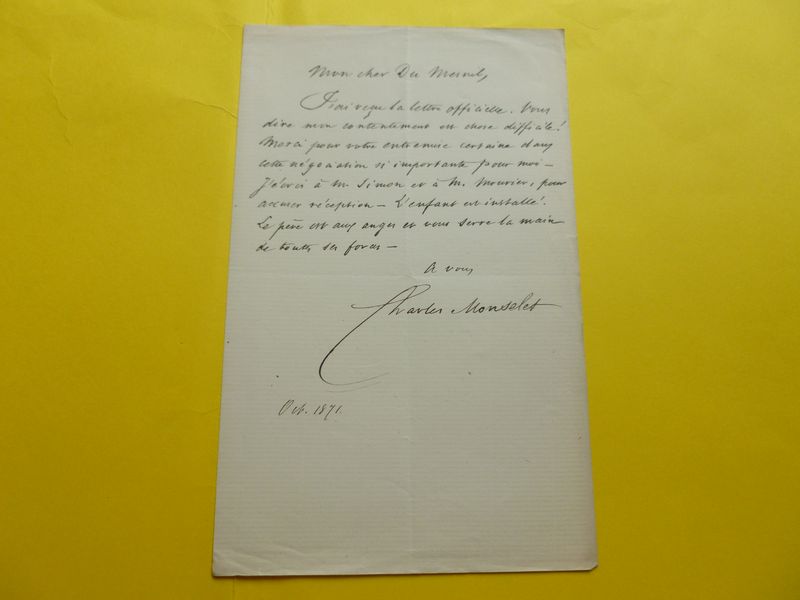 Mon cher Du Mesnil,
J'ai reçu la lettre officielle. Vous
dire mon contentement est chose difficile!
Merci pour votre entremise certaine dans
cette négociation si importante pour moi –
J'écris à M. Simon et à M. Mourier, pour
accuser réception – L'enfant est installé.
Le père est aux anges et vous serre la main
de toutes ses forces –
A vous
Charles Monselet
Oct. 1871.